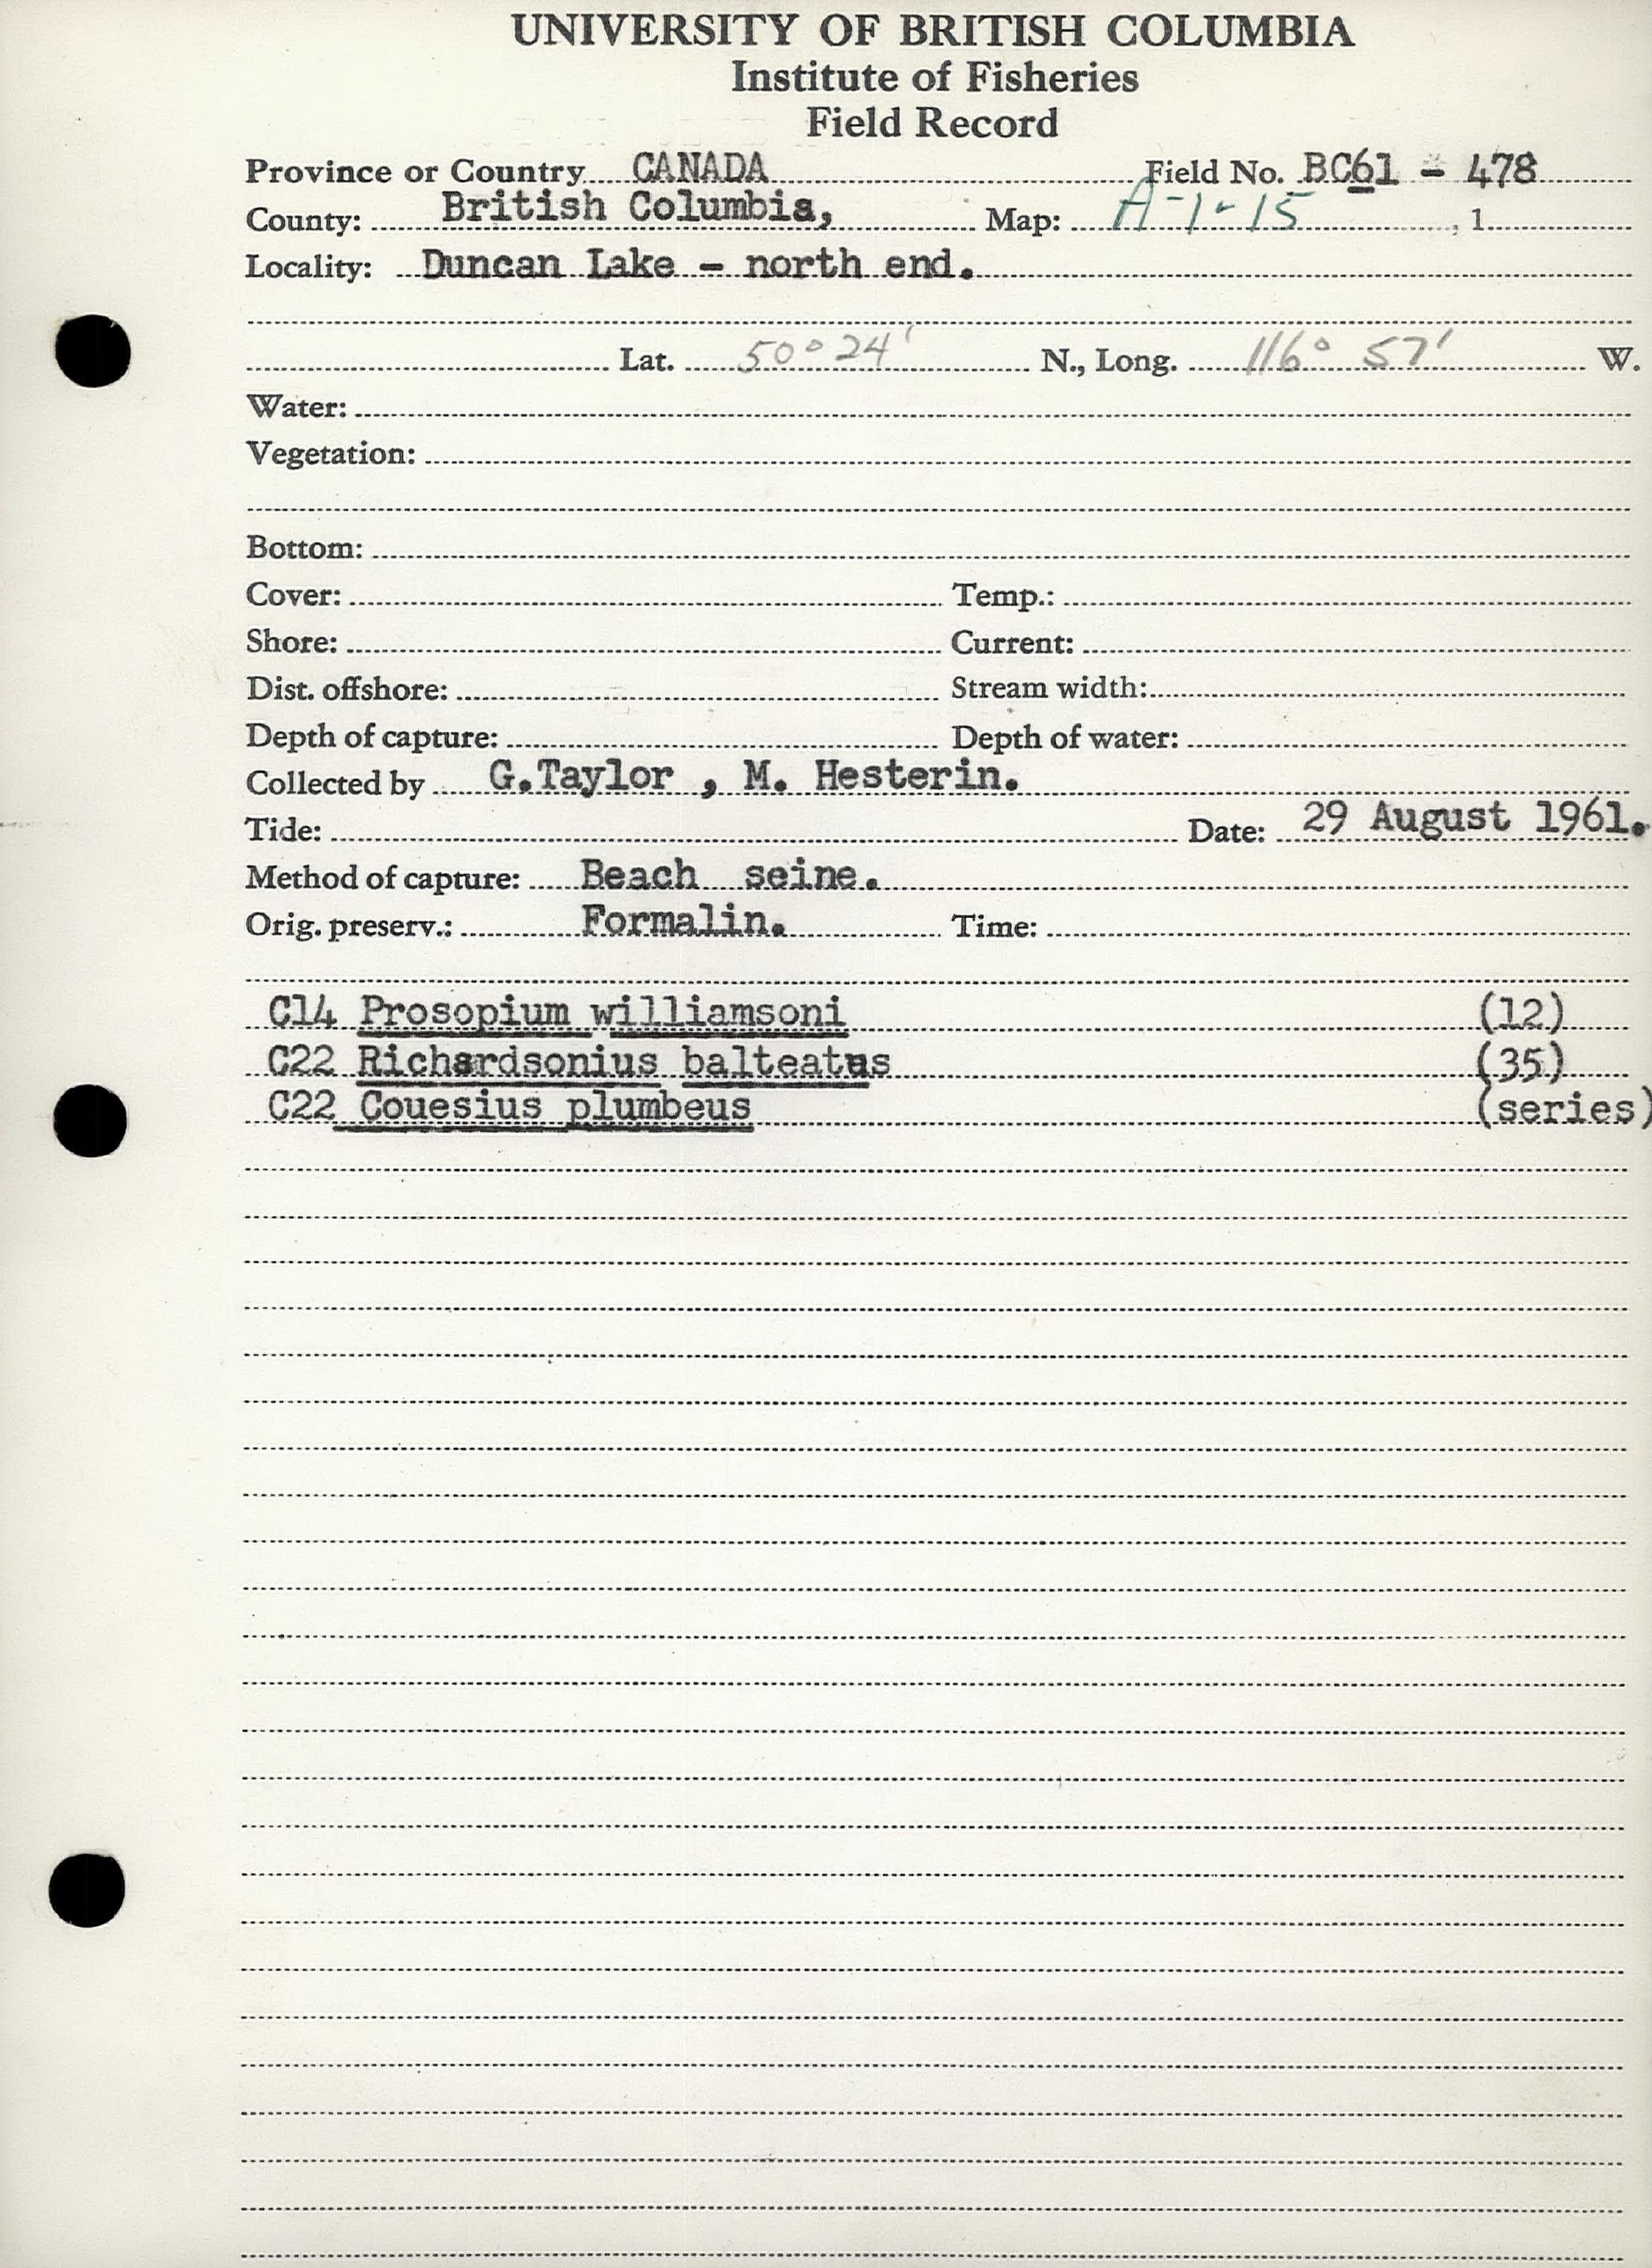 UNIVERSITY OF BRITISH COLUMBIA
Institute of Fisheries
Field Record
Province or Country CANADA Field No. BC61 - 478
County: British Columbia, Map: A-1-15, 1
Locality: Duncan Lake - north end.
Lat. 50° 24' N., Long. 116° 57' W.
Water:
Vegetation:
Bottom:
Cover: Temp.:
Shore: Current:
Dist. offshore: Stream width:
Depth of capture: Depth of water:
Collected by G.Taylor , M. Hesterin.
Tide: Date: 29 August 1961.
Method of capture: Beach seine.
Orig. preserv.: Formalin. Time:
C14 Prosopium williamsoni (12)
C22 Richardsonius balteatus (35)
C22 Couesius plumbeus (series)